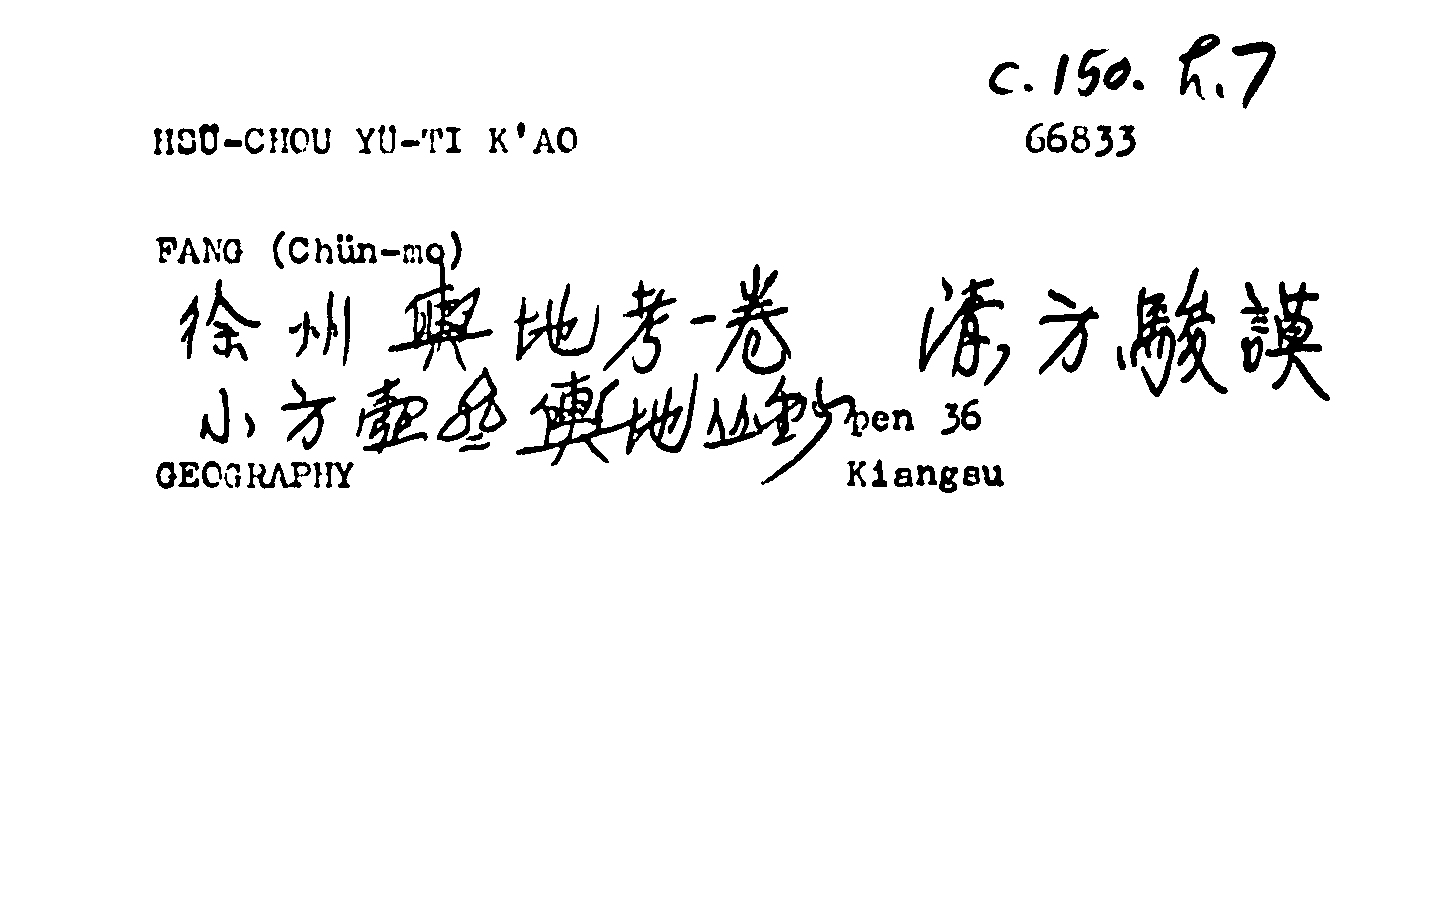 c.150. h.7
HSÜ-CHOU YÜ-TI K'AO 66833
FANG (Chün-mo)
徐州輿地考一卷 清方駿謨
小方壺齋輿地丛鈔 pen 36
GEOGRAPHY Kiangsu